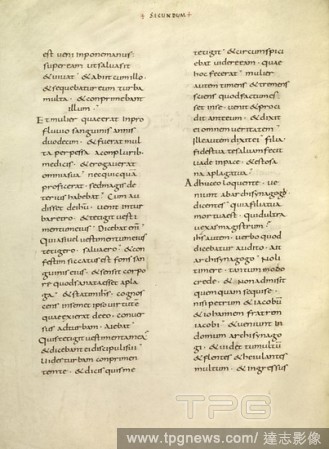 SECUNDUM
est veni inpone manus
super eam ut salva sit
& vivat & abiit cum illo
& sequebatur eum turba
multa & conprimebant
illum
Et mulier quae erat in pro
fluvio sanguinis annis
duodecim & fuerat mul
ta perpessa a conplurib;
medicis & erogaverat
omnia sua nec quicqua
proficerat sed magis de
terius habebat Cum au
disset de ihu venit in tur
ba retro & tetigit vesti
mentum eius Dicebat enī
Quia si vel vestimentum eius
tetigero salva ero & con
festim siccatus est fons san
guinis eius & sensit corpo
re quod sanata esset a pla
ga & statim ihs cognos
cens in semet ipso virtutē
quae exierat de eo conver
sus ad turbam aiebat
Quis tetigit vestimenta mea
& dicebant ei discipuli sui
Vides turbam conprimen
tem te & dicis quis me
tetigit & circumspici
ebat videre eam quae
hoc fecerat mulier
autem timens & tremens
sciens quod factum es
set in se venit & proci
dit ante eum & dixit
ei omnem veritatem
Ille autem dixit ei filia
fides tua te salvam fecit
vade in pace & esto sa
na a plaga tua
Adhuc eo loquente ve
niunt ab archisynagogo
dicentes quia filia tua
mortua est quid ultra
vexas magistrum
ihs autem verbo quod
dicebatur audito ait
archisynagogo Noli
timere tantummodo
crede & non admisit
quemquam sequi se
nisi petrum & iacobū
& iohannem fratrem
iacobi & veniunt in
domum archisynago
gi & videt tumultū
& flentes & heiulantes
multum & ingressus
TPG
www.tpgnews.com/達志影像